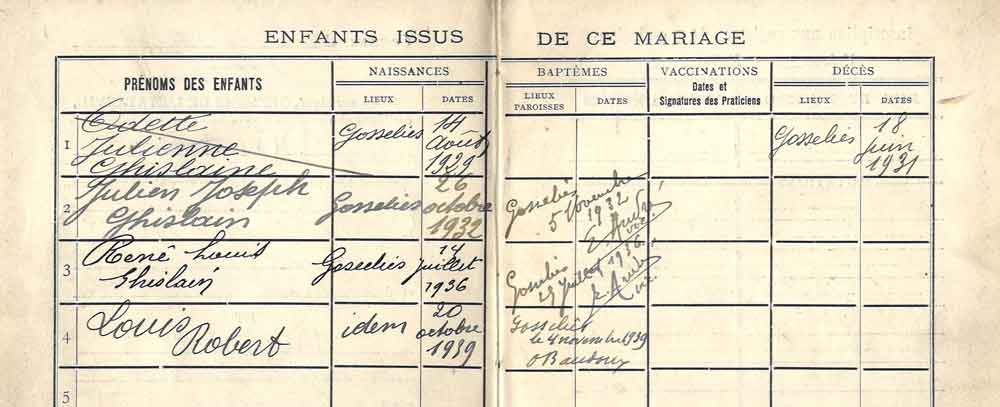 ENFANTS ISSUS DE CE MARIAGE
PRÉNOMS DES ENFANTS
NAISSANCES
LIEUX
DATES
BAPTÊMES
LIEUX
PAROISSES
DATES
VACCINATIONS
Dates et
Signatures des Praticiens
DÉCÈS
LIEUX
DATES
1
Odette
Julienne
Ghislaine
Gosselies
14
août
1929
Gosselies
18
juin
1931
2
Julien Joseph
Ghislain
Gosselies
26
octobre
1932
Gosselies
5 Novembre
1932
3
René Louis
Ghislain
Gosselies
14
juillet
1936
Gosselies
29 juillet 1936
4
Louis
Robert
idem
20
octobre
1939
Gosselies
le 4 novembre 1939
5